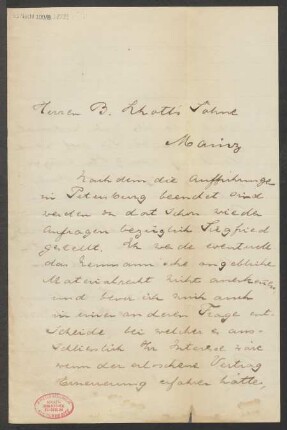 Herren B. Schott's Söhne
Mainz
Nachdem die Aufführungen
in Petersburg beendet sind
werden von dort schon wieder
Anfragen bezüglich Siegfried
gestellt. Ich werde eventuell
das Neumann'sche angebliche
Materialrecht nicht anerkennen
und bevor ich mich auch
in einer anderen Frage ent-
scheide bei welcher es aus-
schließlich Ihr Interesse wäre
wenn der erloschene Vertrag
Erneuerung erfahren hätte,